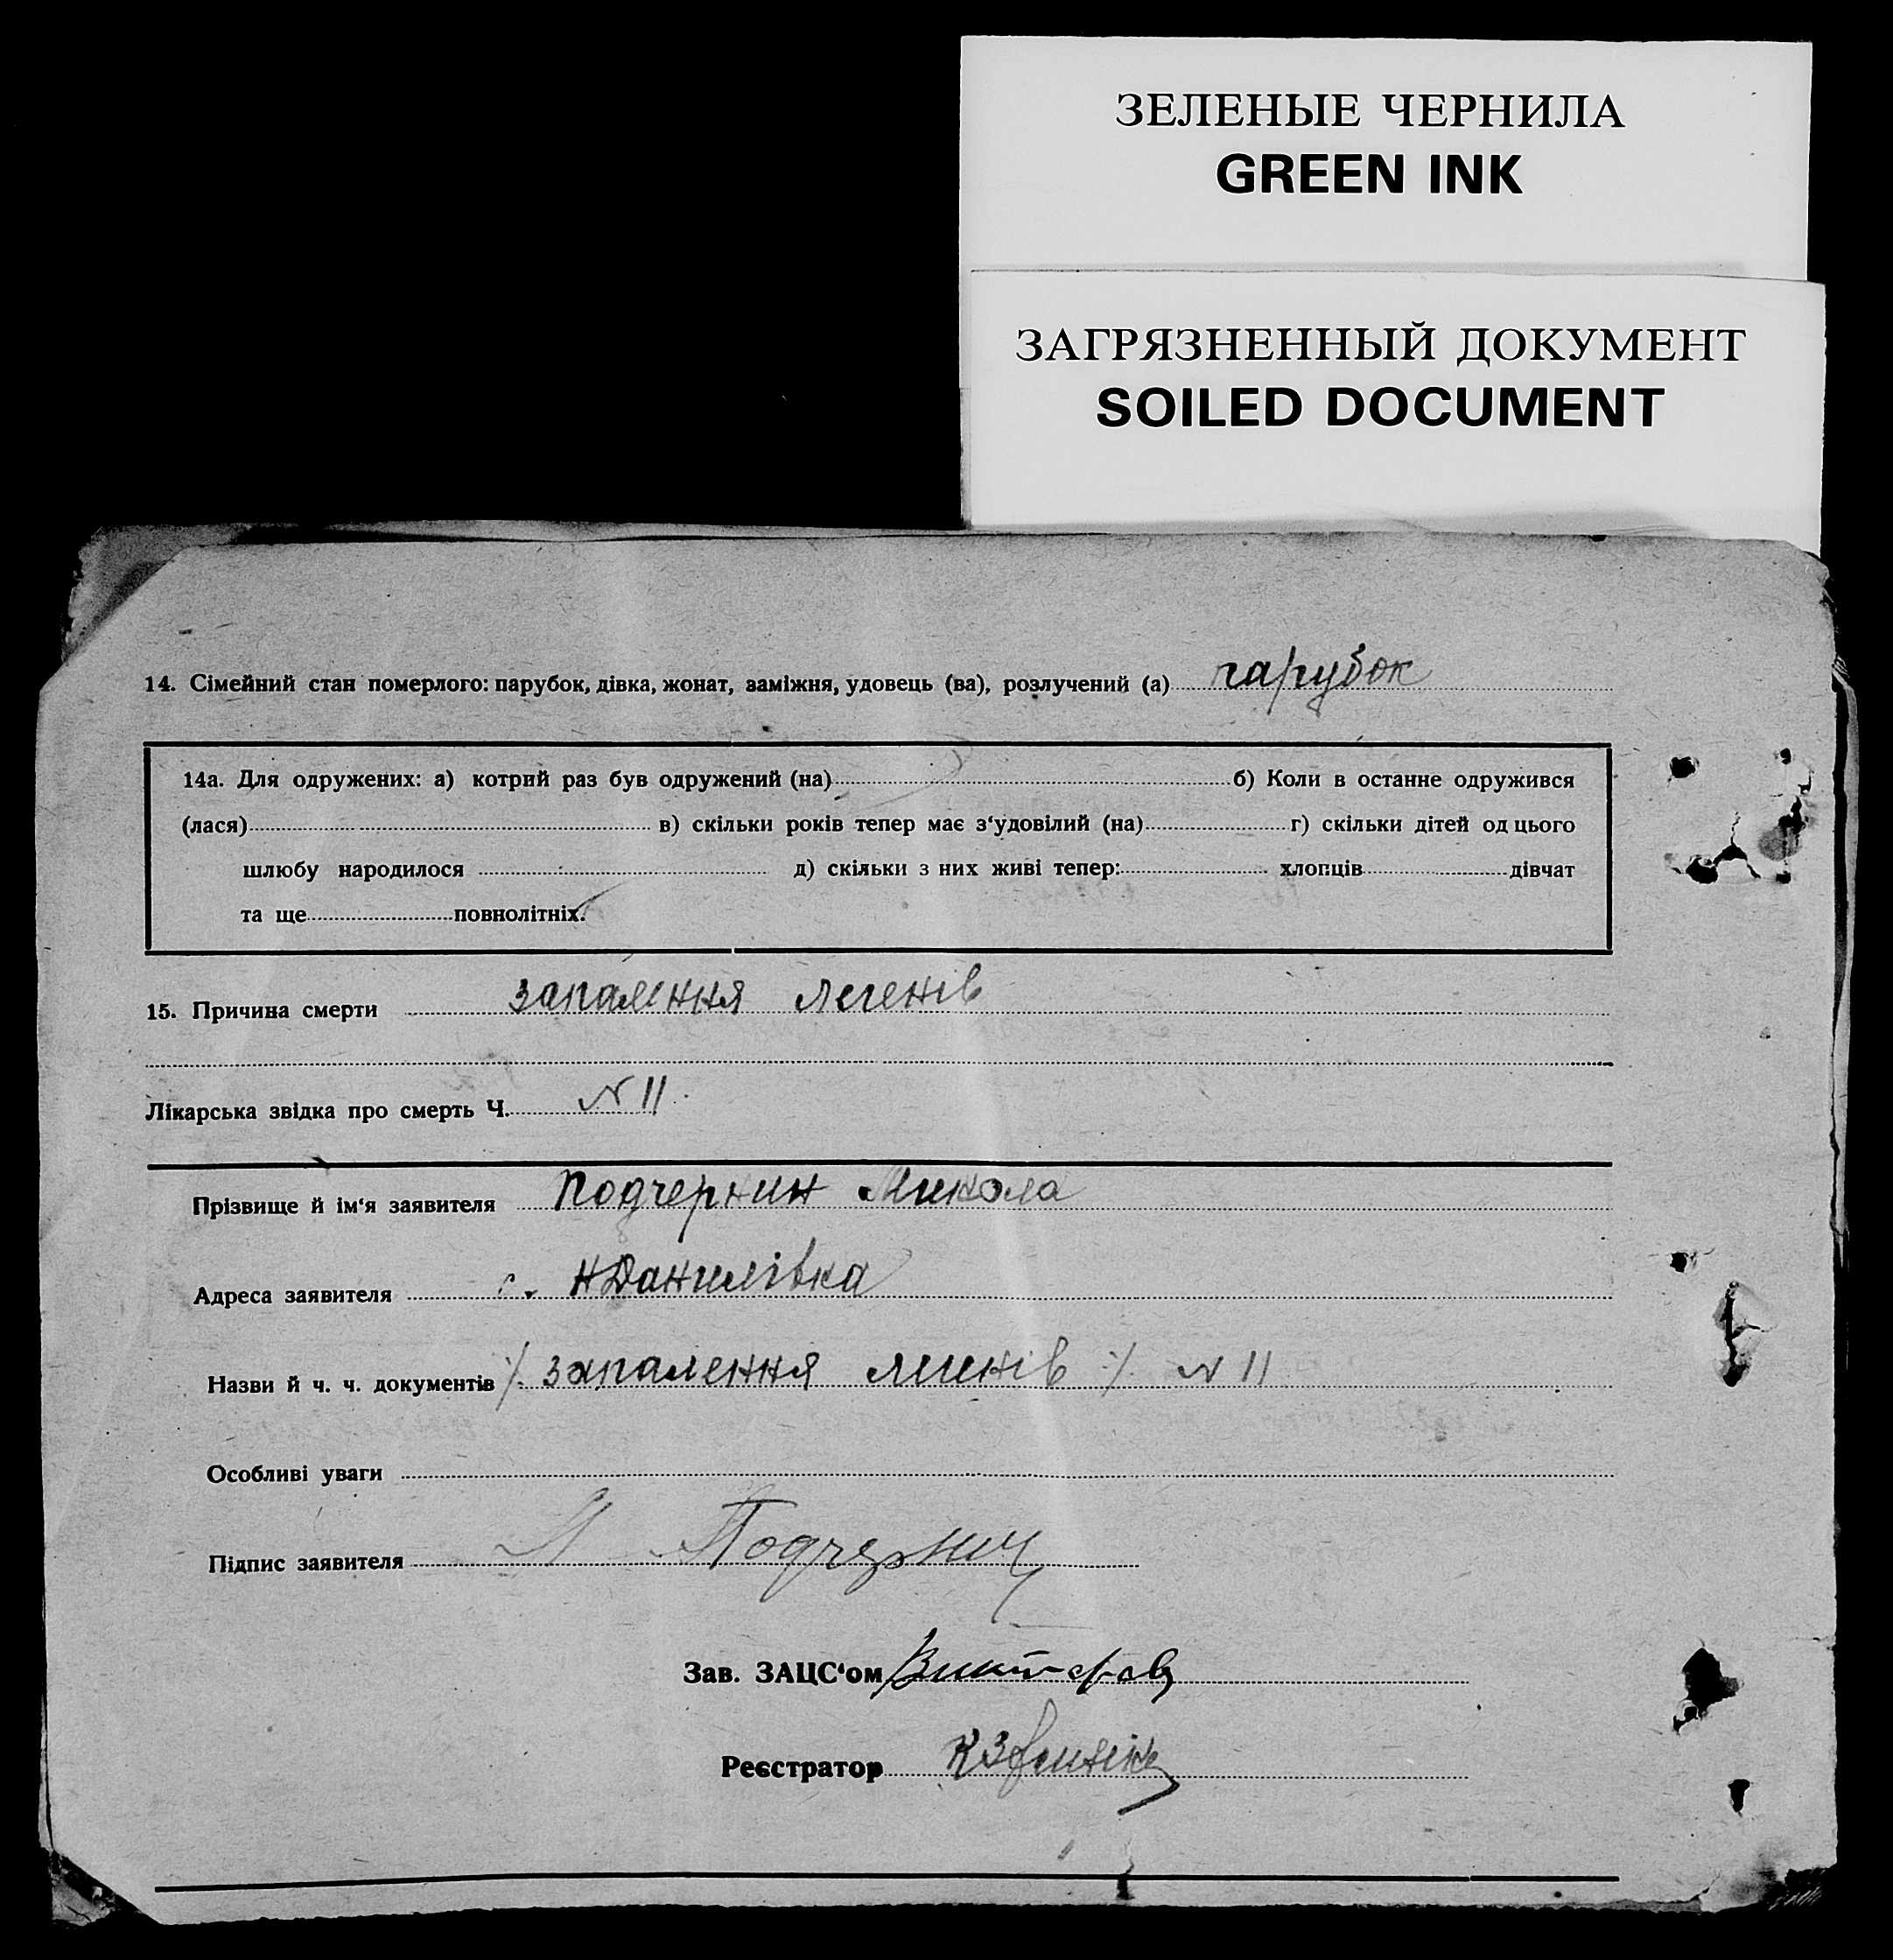 ЗЕЛЕНЫЕ ЧЕРНИЛА
GREEN INK
ЗАГРЯЗНЕННЫЙ ДОКУМЕНТ
SOILED DOCUMENT
14. Сімейний стан померлого: парубок, дівка, жонат, заміжня, удовець (ва), розлучений (а) парубок
14а. Для одружених: а) котрий раз був одружений (на) б) Коли в останне одружився
(лася) в) скільки років тепер має з‘удовілий (на) г) скільки дітей од цього
шлюбу народилося д) скільки з них живі тепер: хлопців дівчат
та ще повнолітніх.
15. Причина смерти запалення легенів
Лікарська звідка про смерть Ч. N 11
Прізвище й ім‘я заявителя Подчернин Микола
Адреса заявителя с. НДанилівка
Назви й ч. ч. документів ·/· запалення легенів ·/· N 11
Особливі уваги
Підпис заявителя
Зав. ЗАЦС‘ом
Реєстратор